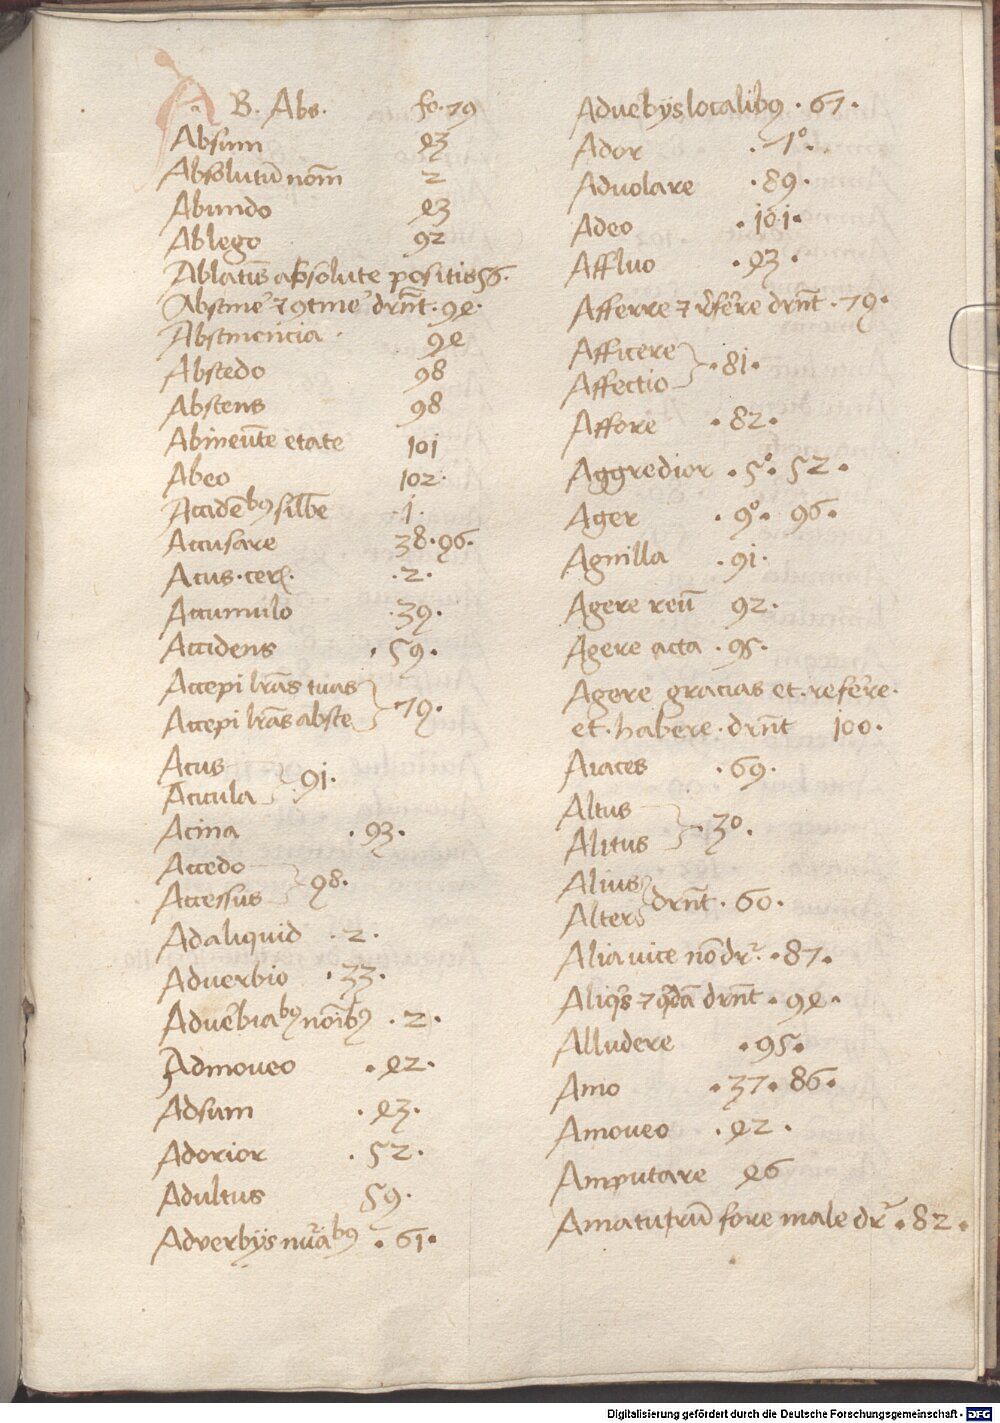 A B. Abs. fo. 79
Absum 43
Absolutū nom̄ 2
Abundo 43
Ablego 92
Ablatiū absolute positis 56.
Abstine᷑ ⁊ ꝯtine᷑ drn̄t. 94.
Abstinencia. 94
Abscedo 98
Abscens 98
Abineūte etate 101
Abeo 102.
Accidētibꝰ sillbe .1.
Accusare 38. 96.
Acus. ceꝝ. .2.
Accumulo .39.
Accidens .59.
Accepi lr̄as tuas
Accepi lr̄as abste } 79.
Acus
Acicula } 91.
Acina .93.
Accedo
Accessus } 98.
Adaliquid .2.
Adverbio .33.
Adverbiabꝰ noībꝰ .2.
Admoveo .42.
Adsum .43.
Adorior .52.
Adultus 59.
Adverbijs nūrabꝰ .61.
Aduerbijs localibꝰ .67.
Ador .1º.
Aduolare .89.
Adeo .101.
Affluo .43.
Afferre ⁊ rēferre drn̄t .79.
Afficere
Affectio } .81.
Affore .82.
Aggredior .5º. 52.
Ager .9º. 96.
Agnilla .91.
Agere reū 92.
Agere acta .95.
Agere gracias et. refere.
et. habere. drn̄t 100.
Aiaces .69.
Altus
Alitus } .30.
Alius
Alter } drn̄t .60.
Alia vice nō dr̄. .87.
Aliq̄s ⁊ q̄dā drn̄t .94.
Alludere .95.
Amo .37. 86.
Amoveo .42.
Amputare 46
Amatutrū fore male dr̄ .82.
Digitalisierung gefördert durch die Deutsche Forschungsgemeinschaft - DFG